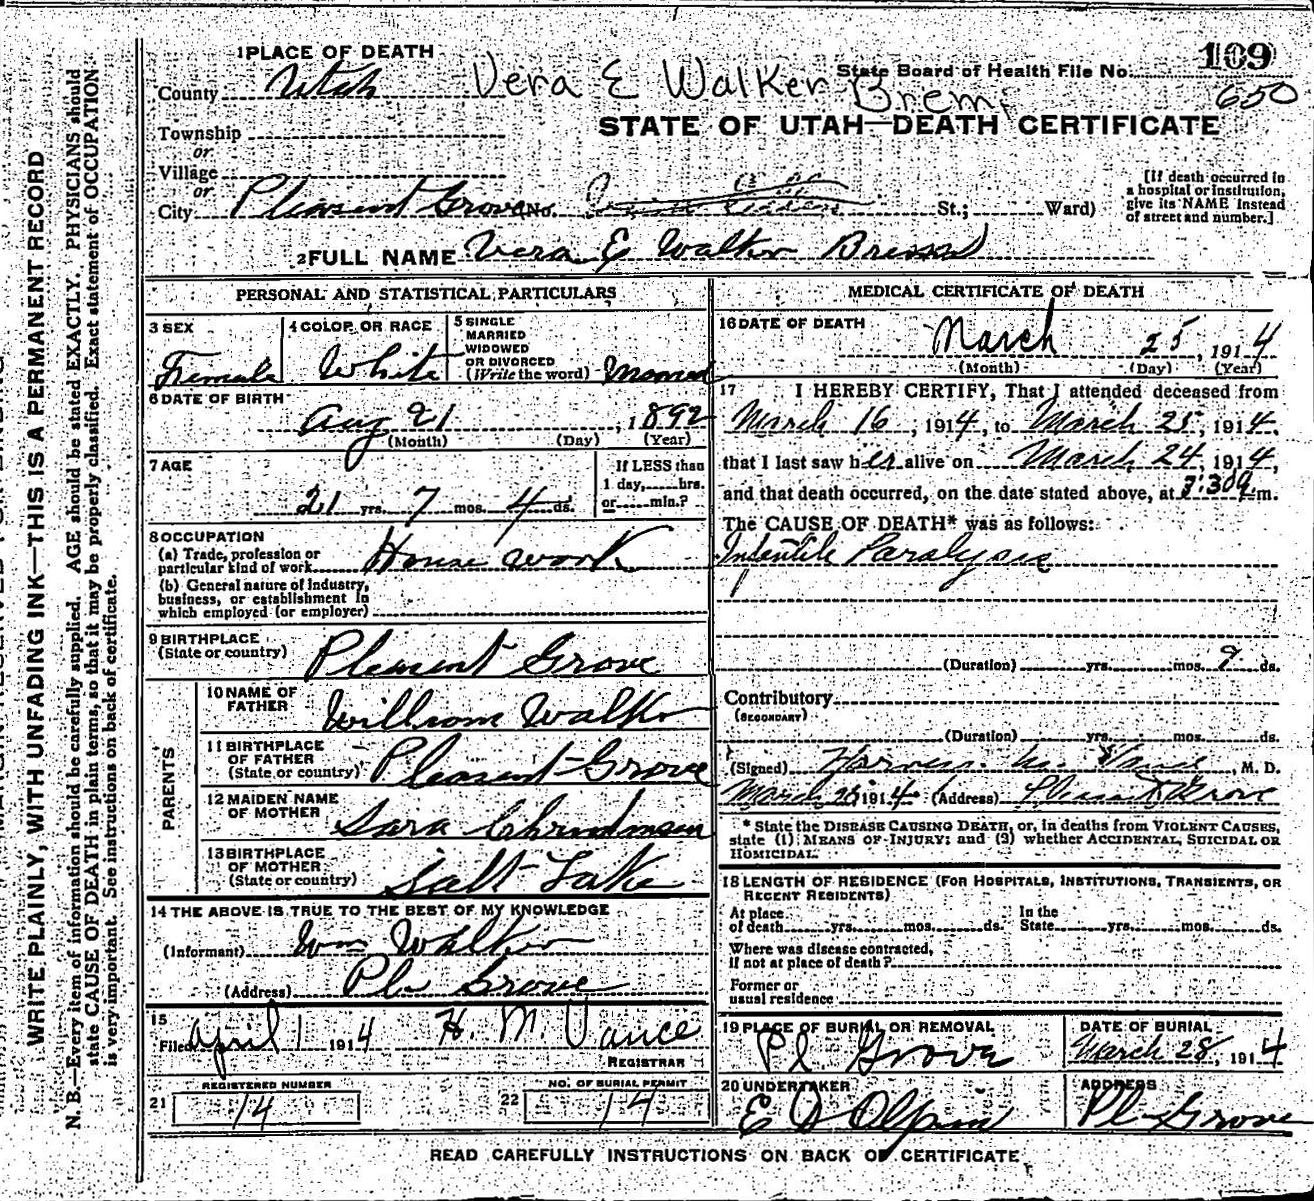 1 PLACE OF DEATH
109
State Board of Health File No.
650
County Utah
Vera E Walker Brem
STATE OF UTAH—DEATH CERTIFICATE
Township
or
Village
or
City Pleasant Grove No. St.; Ward)
[If death occurred in a hospital or institution, give its NAME instead of street and number.]
2 FULL NAME Vera E Walker
PERSONAL AND STATISTICAL PARTICULARS
3 SEX
Female
4 COLOR OR RACE
White
5 SINGLE
MARRIED
WIDOWED
OR DIVORCED
(Write the word) Married
6 DATE OF BIRTH
Aug 21, 1892
(Month) (Day) (Year)
7 AGE
21 yrs. 7 mos. 4 ds.
If LESS than
1 day,.....hrs.
or.....min.?
8 OCCUPATION
(a) Trade, profession or
particular kind of work House work
(b) General nature of industry,
business, or establishment in
which employed (or employer)
9 BIRTHPLACE
(State or country) Pleasant Grove
PARENTS
10 NAME OF
FATHER William Walker
11 BIRTHPLACE
OF FATHER
(State or country) Pleasant Grove
12 MAIDEN NAME
OF MOTHER Sara
13 BIRTHPLACE
OF MOTHER
(State or country) Salt Lake
14 THE ABOVE IS TRUE TO THE BEST OF MY KNOWLEDGE
(Informant) Wm Walker
(Address) Pl Grove
15
Filed April 1 1914 H. M Vance
REGISTRAR
REGISTERED NUMBER
21 14
NO. OF BURIAL PERMIT
22 14
MEDICAL CERTIFICATE OF DEATH
16 DATE OF DEATH
March 25, 1914
(Month) (Day) (Year)
17 I HEREBY CERTIFY, That I attended deceased from
March 16, 1914, to March 25, 1914,
that I last saw her alive on March 24, 1914,
and that death occurred, on the date stated above, at 7:30 a.m.
The CAUSE OF DEATH* was as follows:
Infantile Paralysis
(Duration) yrs. mos. 9 ds.
Contributory
(SECONDARY)
(Duration) yrs. mos. ds.
(Signed) Vance, M. D.
March 26 1914 (Address) Pleasant Grove
* State the DISEASE CAUSING DEATH, or, in deaths from VIOLENT CAUSES,
state (1) MEANS OF INJURY; and (2) whether ACCIDENTAL, SUICIDAL OR
HOMICIDAL.
18 LENGTH OF RESIDENCE (FOR HOSPITALS, INSTITUTIONS, TRANSIENTS, OR
RECENT RESIDENTS)
At place
of death yrs. mos. ds.
In the
State yrs. mos. ds.
Where was disease contracted,
if not at place of death?
Former or
usual residence
19 PLACE OF BURIAL OR REMOVAL
Pl. Grove
DATE OF BURIAL
March 28, 1914
20 UNDERTAKER
E D Olpin
ADDRESS
Pl Grove
READ CAREFULLY INSTRUCTIONS ON BACK OF CERTIFICATE
WRITE PLAINLY, WITH UNFADING INK—THIS IS A PERMANENT RECORD
N. B.—Every item of information should be carefully supplied. AGE should be stated EXACTLY. PHYSICIANS should
state CAUSE OF DEATH in plain terms, so that it may be properly classified. Exact statement of OCCUPATION
is very important. See instructions on back of certificate.